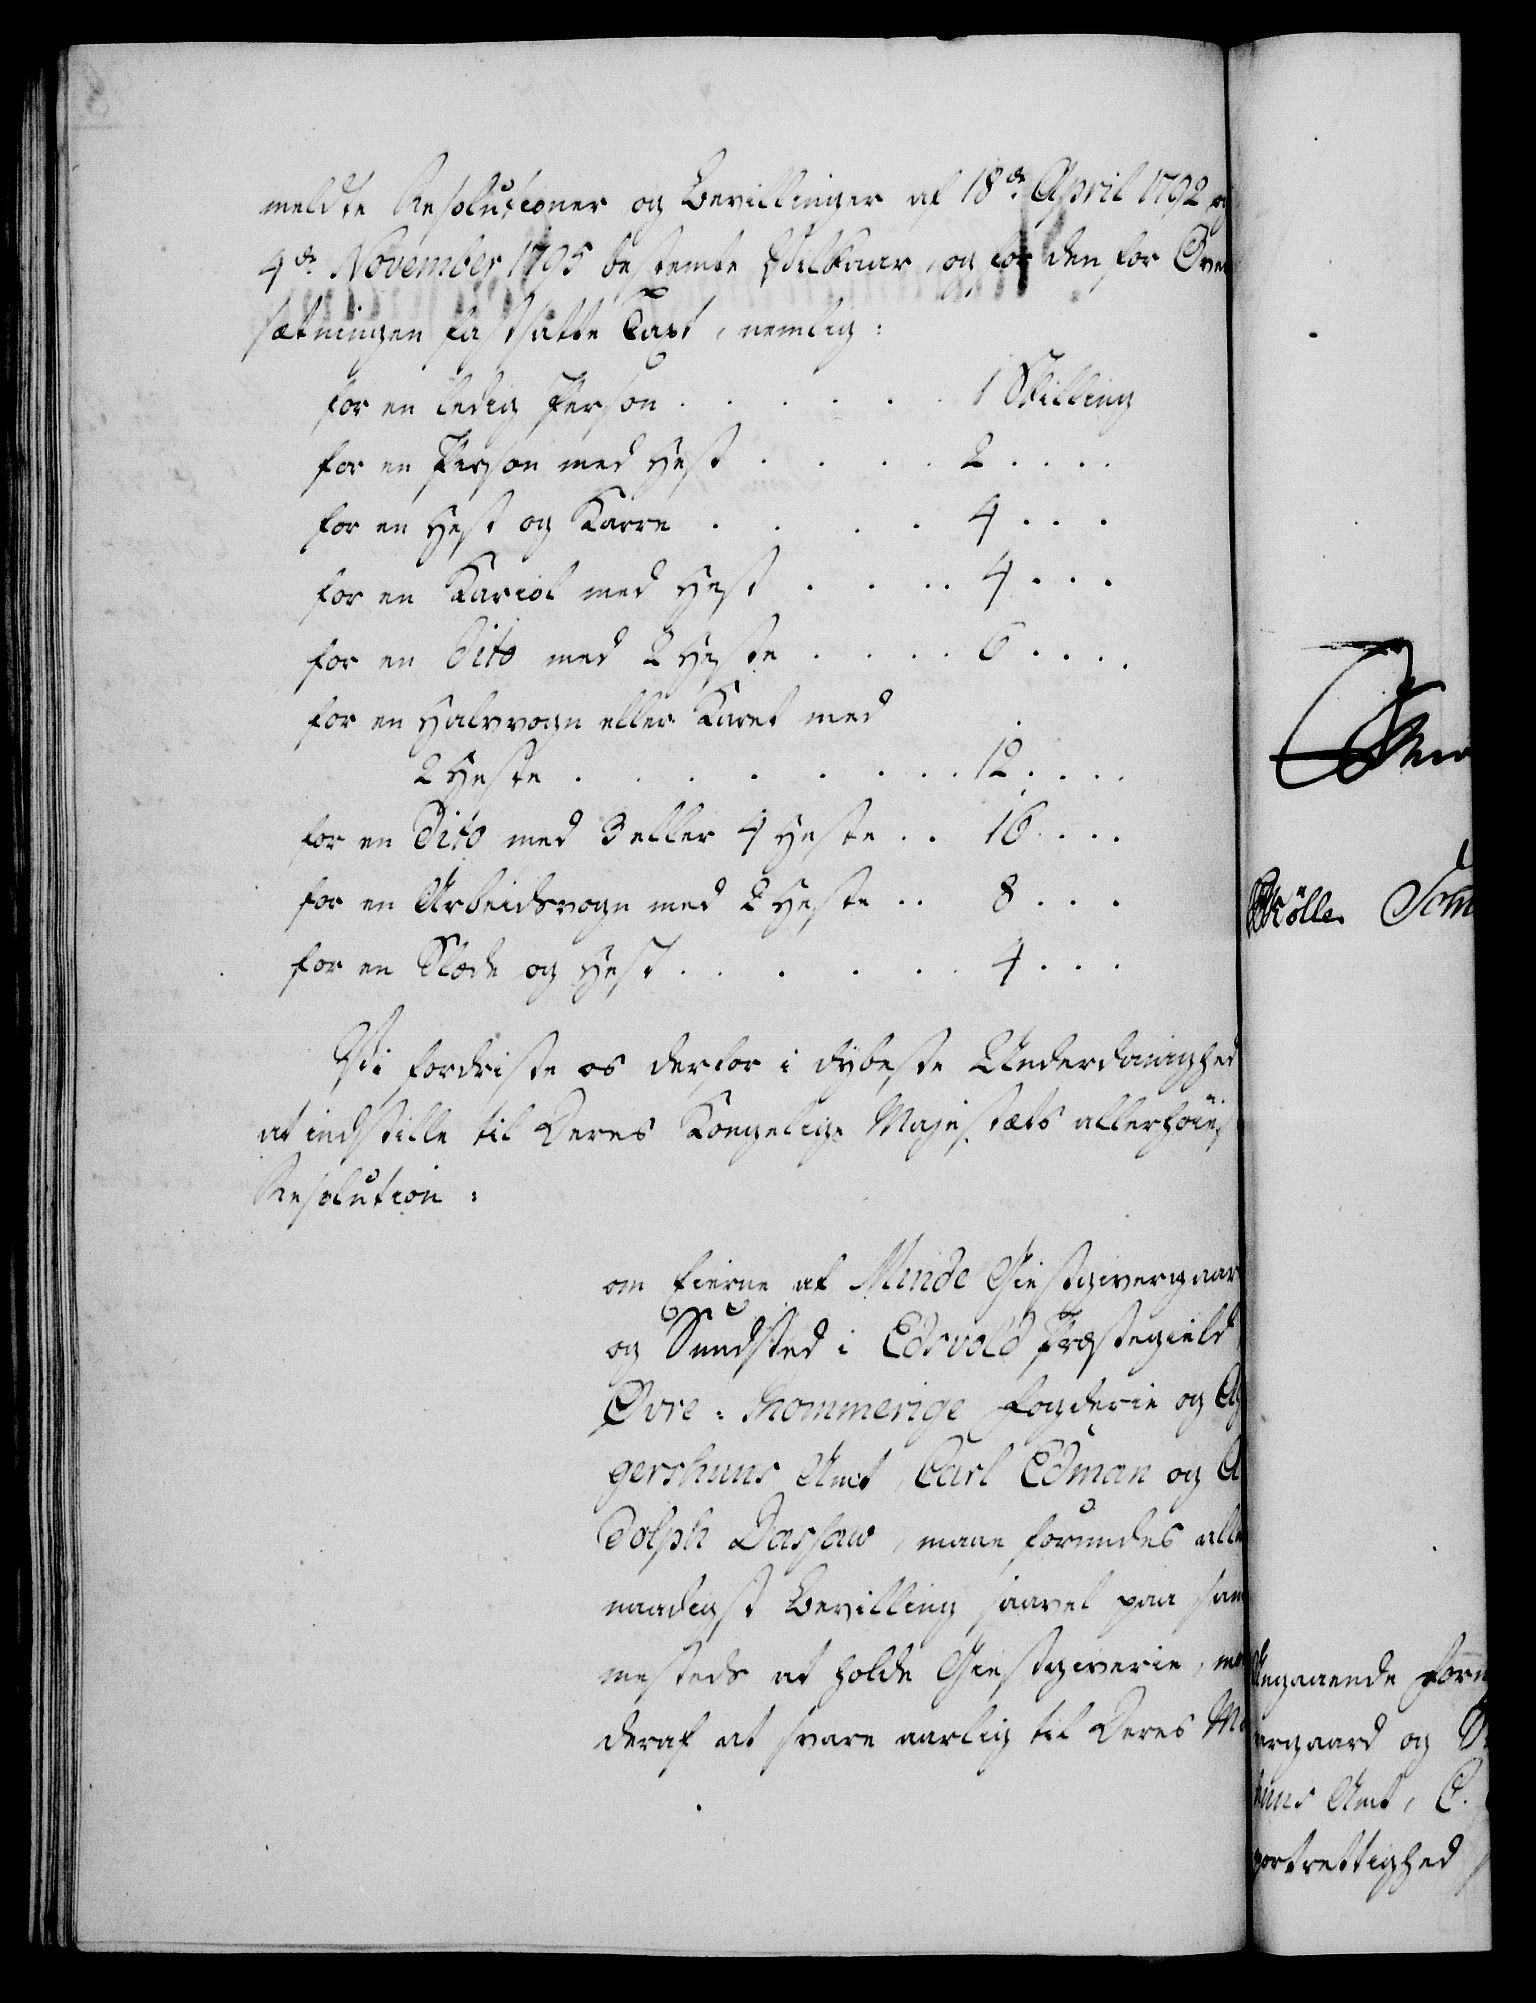 meldte Resolutioner og Bevillinger af 18de April 1792 og
4de November 1795 bestemte Vilkaar, og for den for Over
sætningen fastsatte Taxt, nemlig:
for en ledig Person . . . . . . 1 Skilling
for en Person med Hest . . . . 2 . . . .
for en Hest og Karre . . . . 4 . . .
for en Kariol med Hest . . . . 4 . . .
for en Dito med 2 Heste . . . . 6 . . . .
for en Halvvogn eller Karet med
2 Heste . . . . . . . . 12 . . . .
for en Dito med 3 eller 4 Heste . . 16 . . .
for en Arbeidsvogn med 2 Heste . . 8 . . .
for en Slæde og Hest . . . . . . 4 . . .
Vi fordriste os derfor i dybeste Underdanighed
at indstille til Deres Kongelige Majestæts allerhøies
Resolution:
om Eierne af Minde Giestgivergaar
og Sundsted i Edsvold Præstegield
Øvre-Rommerige Fogderie og Ag
gershuus Amt, Carl Edman og A
dolph Dassaw, maae forundes alle
naadigst Bevilling saavel paa sam
mesteds at holde Giestgiverie, mo
deraf at svare aarlig til Deres Ma
Møller
egaaende Forn
vergaard og
huus Amt, C.
portrettighed